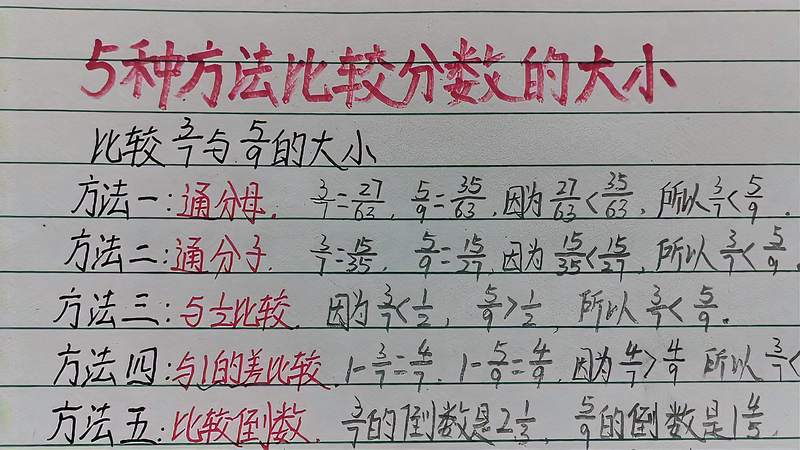 5种方法比较分数的大小
比较3/7与5/9的大小
方法一:通分母. 3/7=27/63, 5/9=35/63, 因为27/63<35/63, 所以3/7<5/9.
方法二:通分子. 3/7=15/35, 5/9=15/27, 因为15/35<15/27, 所以3/7<5/9.
方法三:与1/2比较. 因为3/7<1/2, 5/9>1/2, 所以3/7<5/9.
方法四:与1的差比较. 1-3/7=4/7, 1-5/9=4/9, 因为4/7>4/9 所以3/7<
方法五:比较倒数. 3/7的倒数是2 1/3, 5/9的倒数是1 4/5,